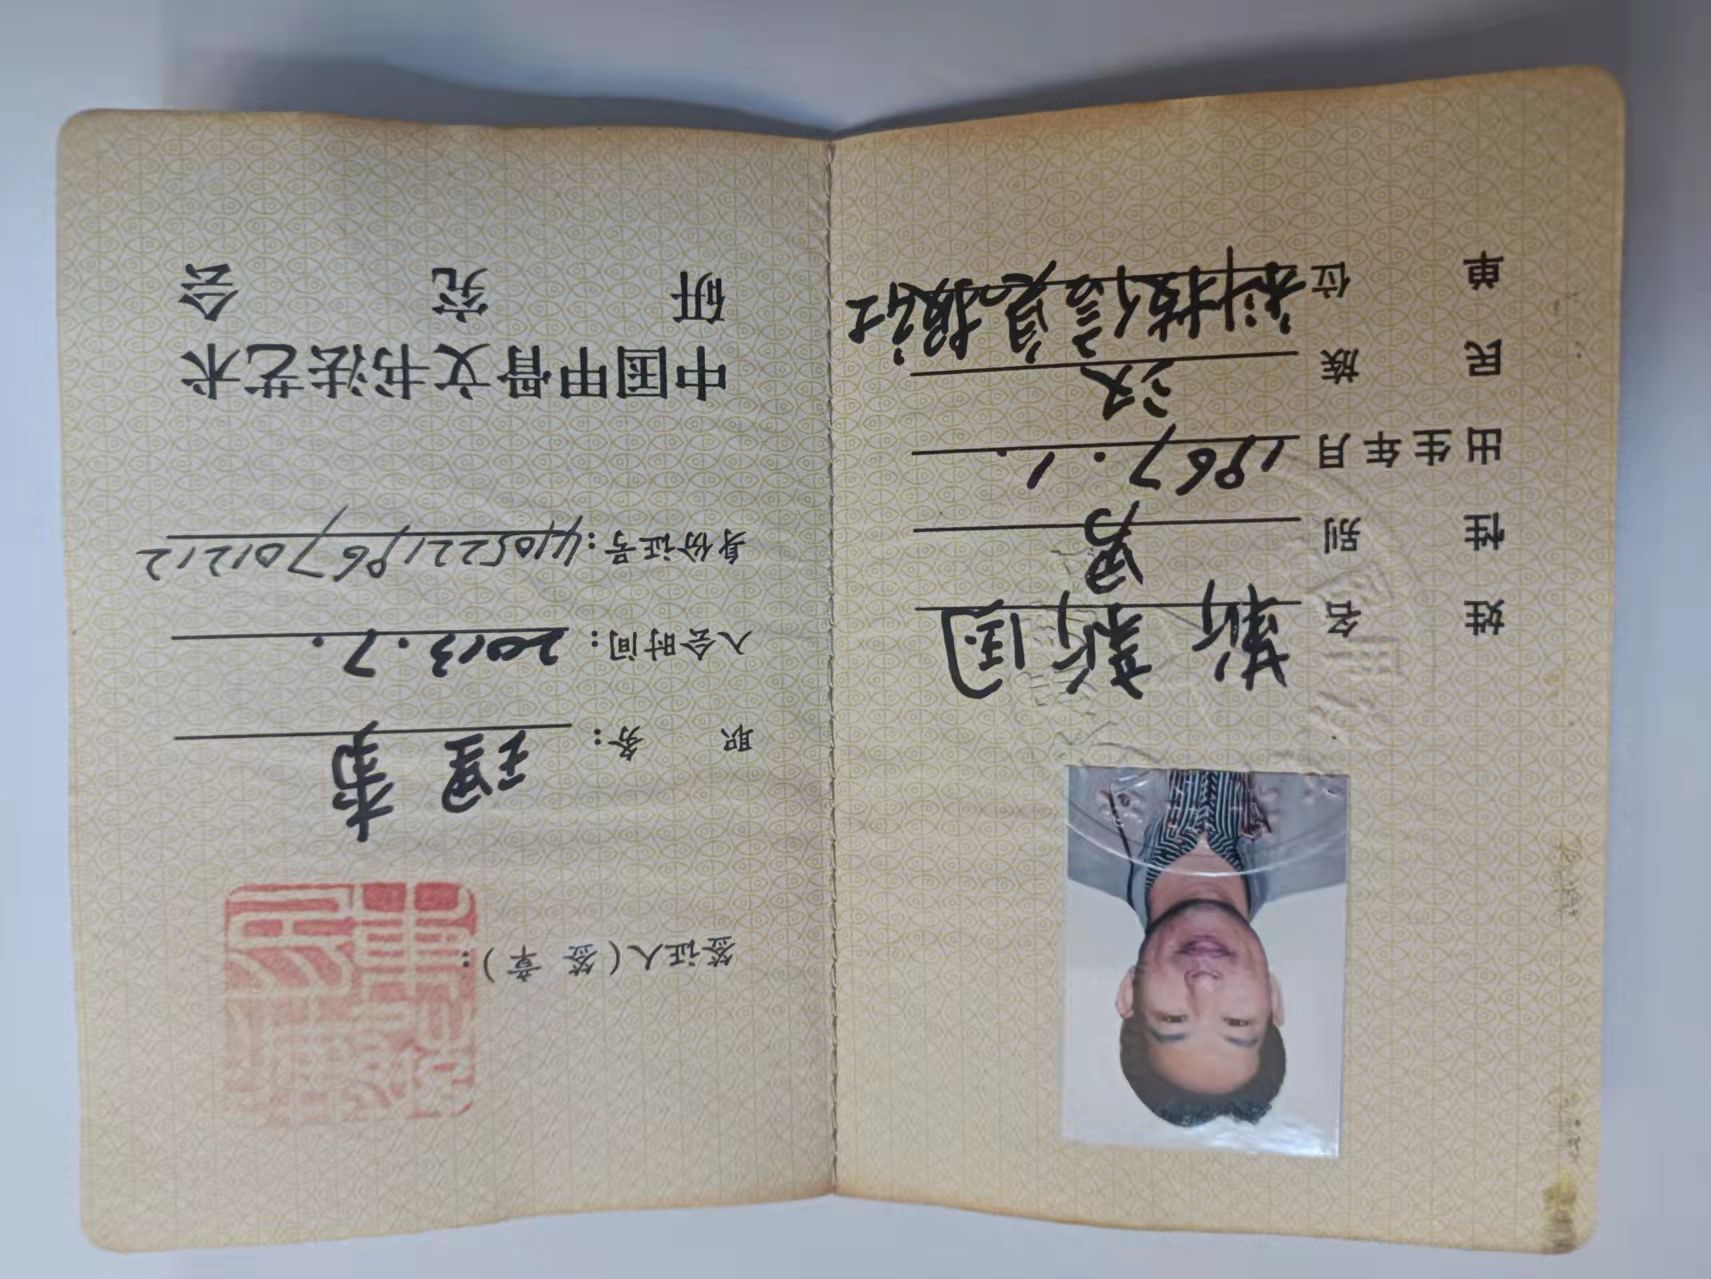 姓名 靳新国
性别 男
出生年月 1967.1.
民族 汉
单位 科技信息报社
签证人(签章):
职务: 理事
入会时间: 2013.7.
身份证号: 410522196701212
中国甲骨文书法艺术
研究会